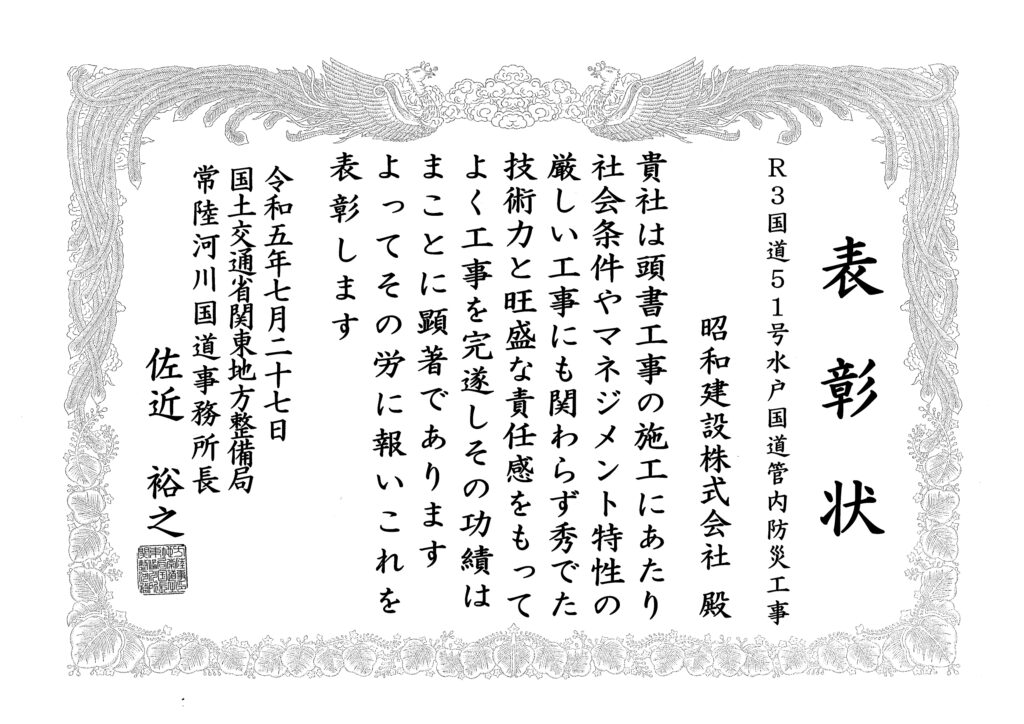 表彰状
R3国道51号水戸国道管内防災工事
昭和建設株式会社 殿
貴社は頭書工事の施工にあたり
社会条件やマネジメント特性の
厳しい工事にも関わらず秀でた
技術力と旺盛な責任感をもって
よく工事を完遂しその功績は
まことに顕著であります
よってその労に報いこれを
表彰します
令和五年七月二十七日
国土交通省関東地方整備局
常陸河川国道事務所長
佐近 裕之